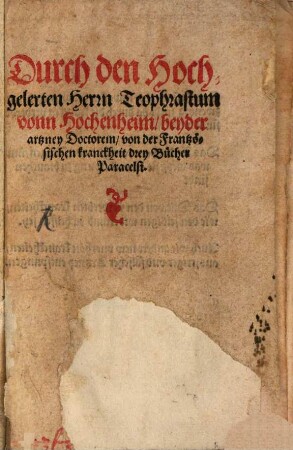 Durch den Hoch,
gelerten Herrn Teophrastum
vonn Hochenheim/ beyder
artzney Doctorem/ von der Frantzö-
sischen kranckheit drey Bücher
Paracelsi.